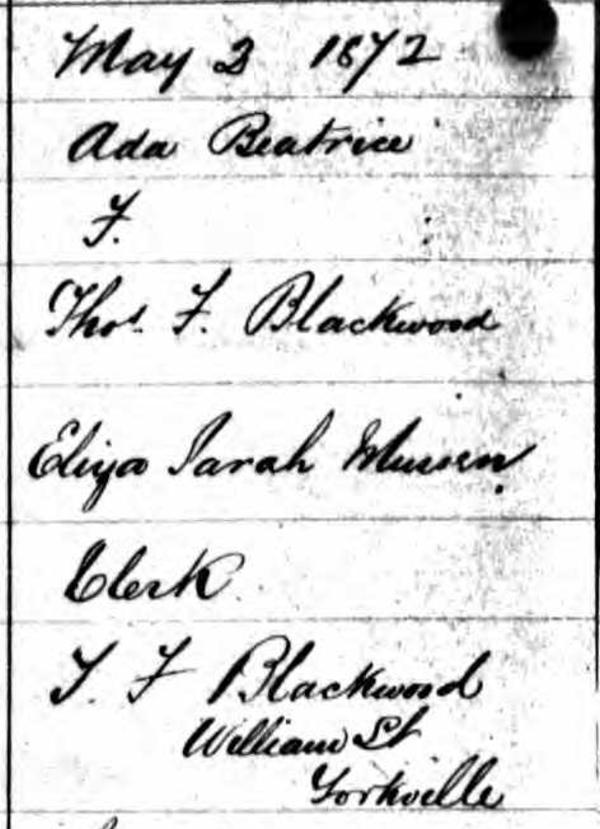 May 3 1872
Ada Beatrice
F.
Thos. F. Blackwood
Eliza Sarah Mussen
Clerk
T. F Blackwood
William St
Yorkville